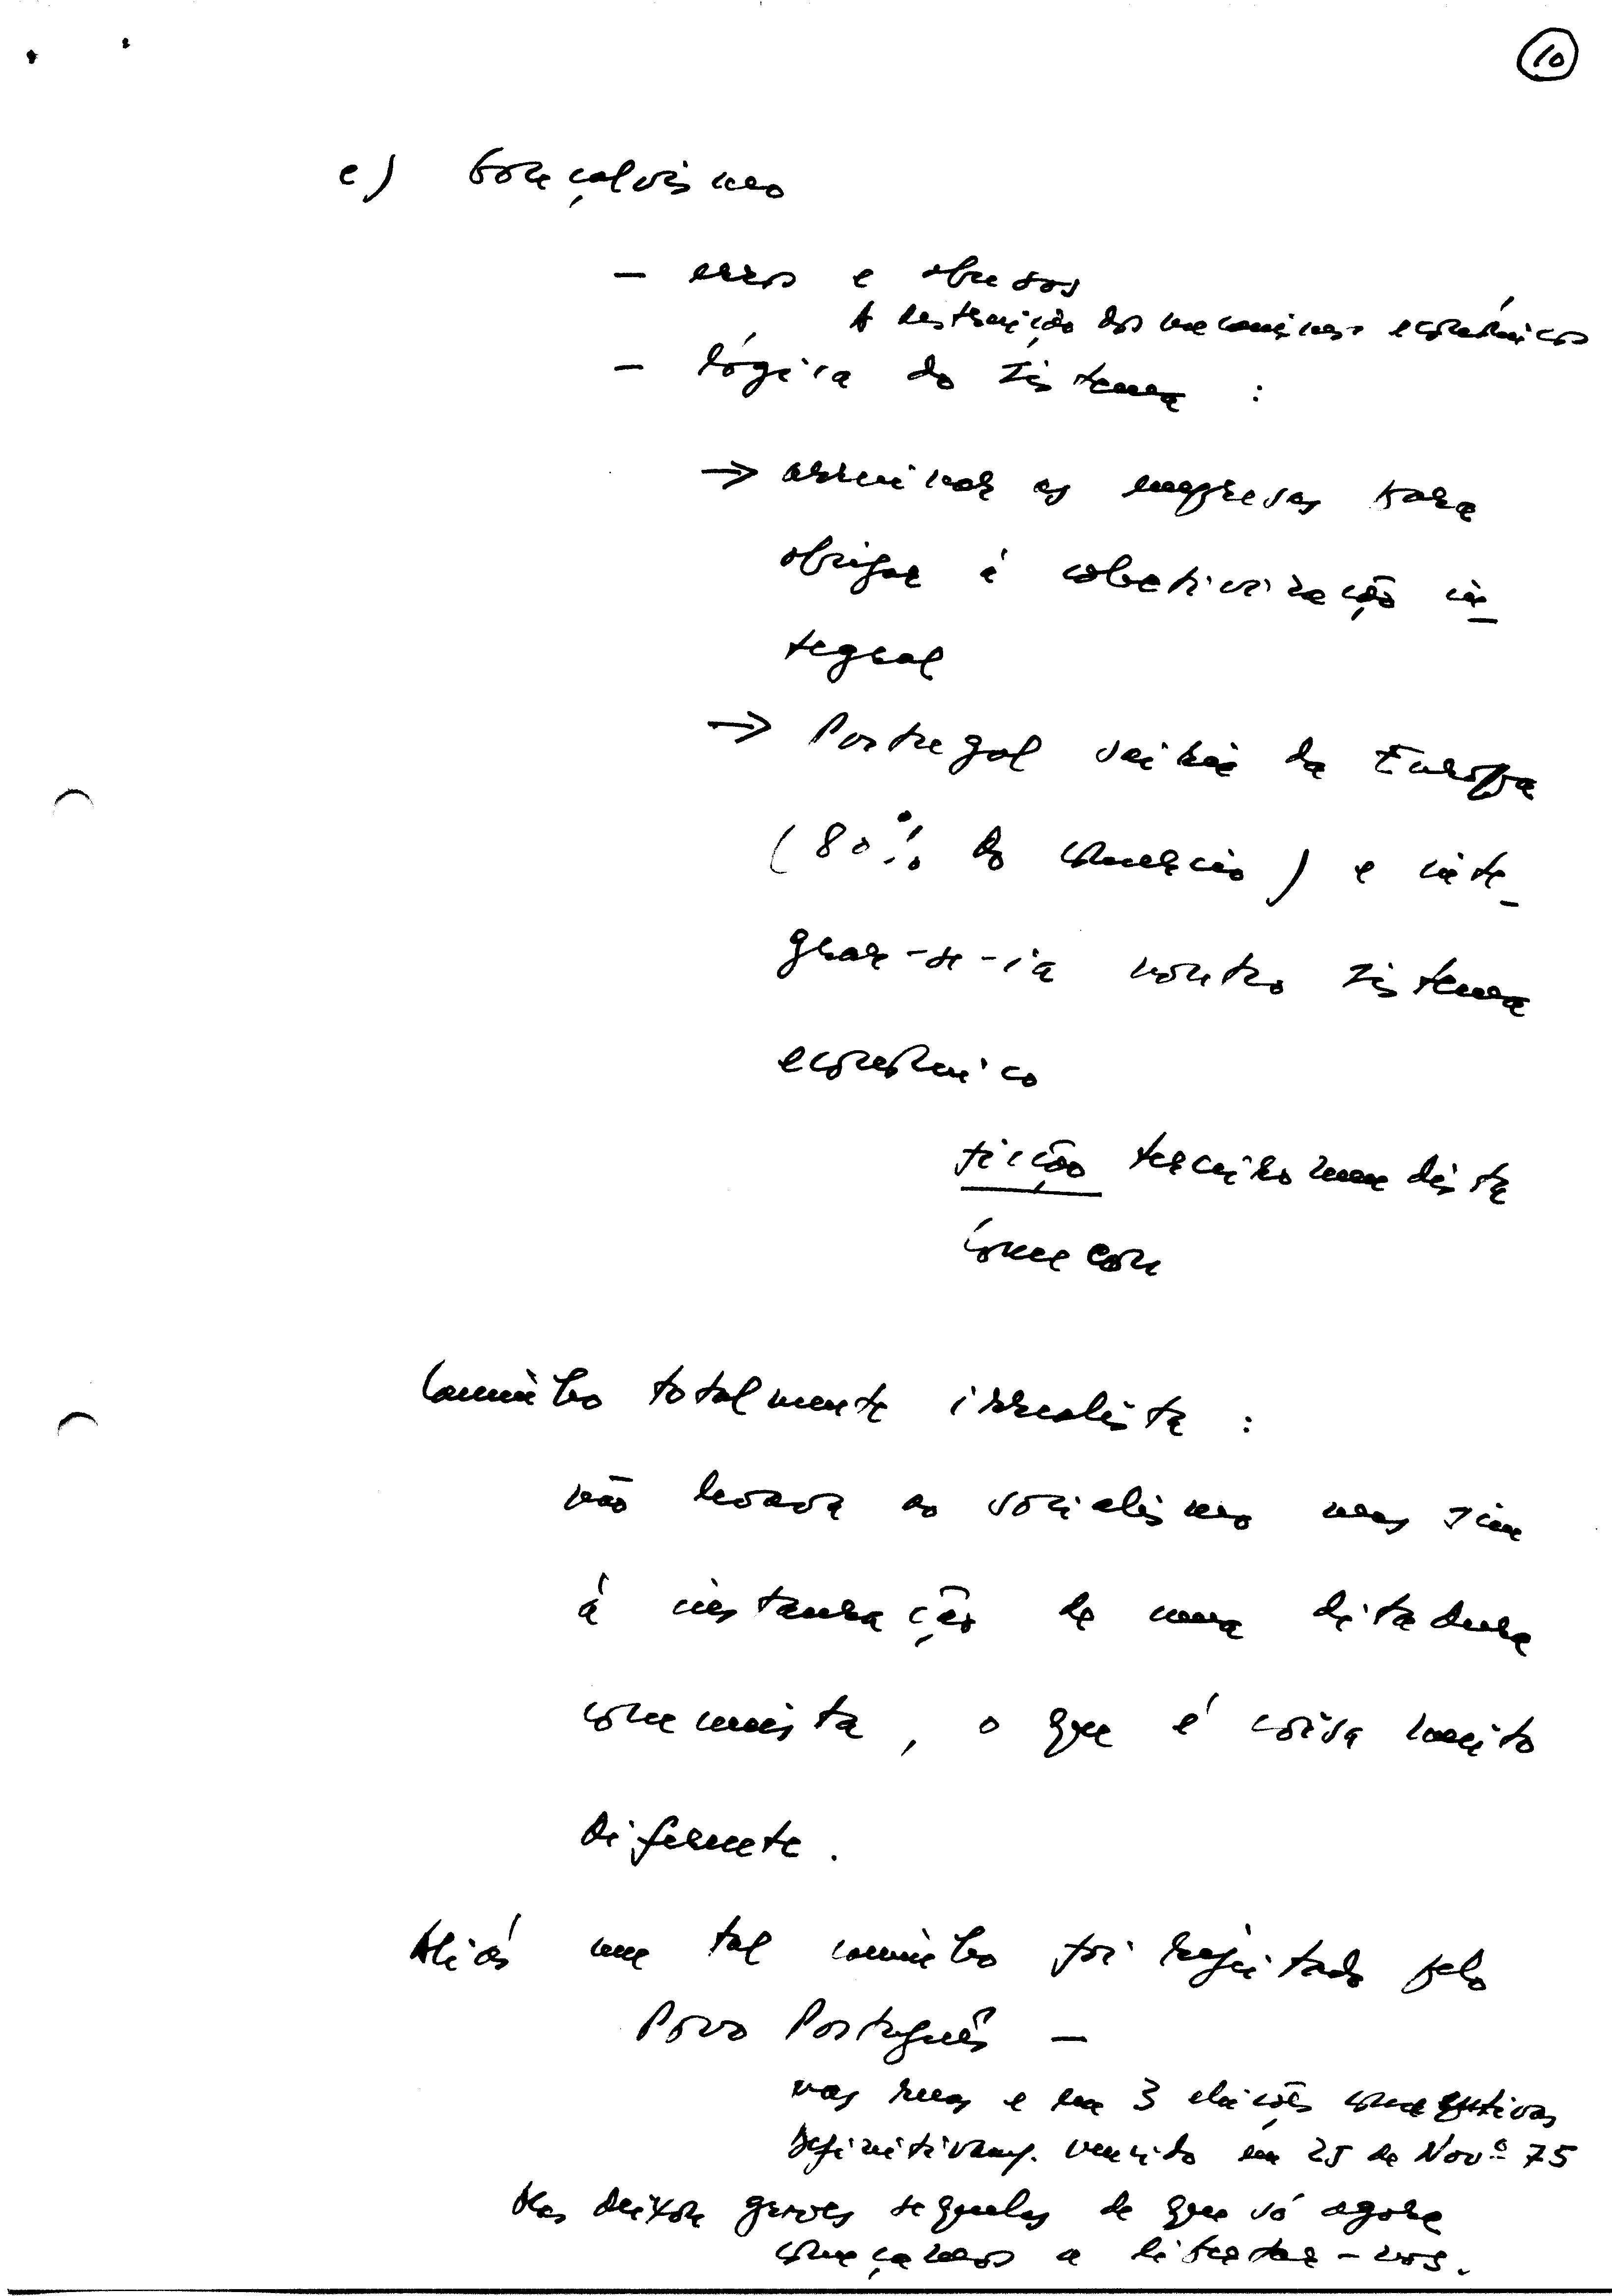 10
e) Gonçalvismo
- erros e abusos
A destruição dos mecanismos económicos
- lógica do sistema :
→ arruinar as empresas para
obrigar à colectivização in-
tegral
→ Portugal sairia da Europa
(80% do comércio) e inte-
grar-se-ia noutro sistema
económico
ficção terceiromundista
Comecon
Caminho totalmente irrealista :
não levava ao socialismo mas sim
à instauração de uma ditadura
comunista, o que é coisa muito
diferente.
Aliás um tal caminho foi rejeitado pelo
Povo Português -
nas ruas e em 3 eleições consecutivas
Definitivam. vencido em 25 de Novº 75
Mas deixou graves sequelas de que só agora
começamos a libertar-nos.